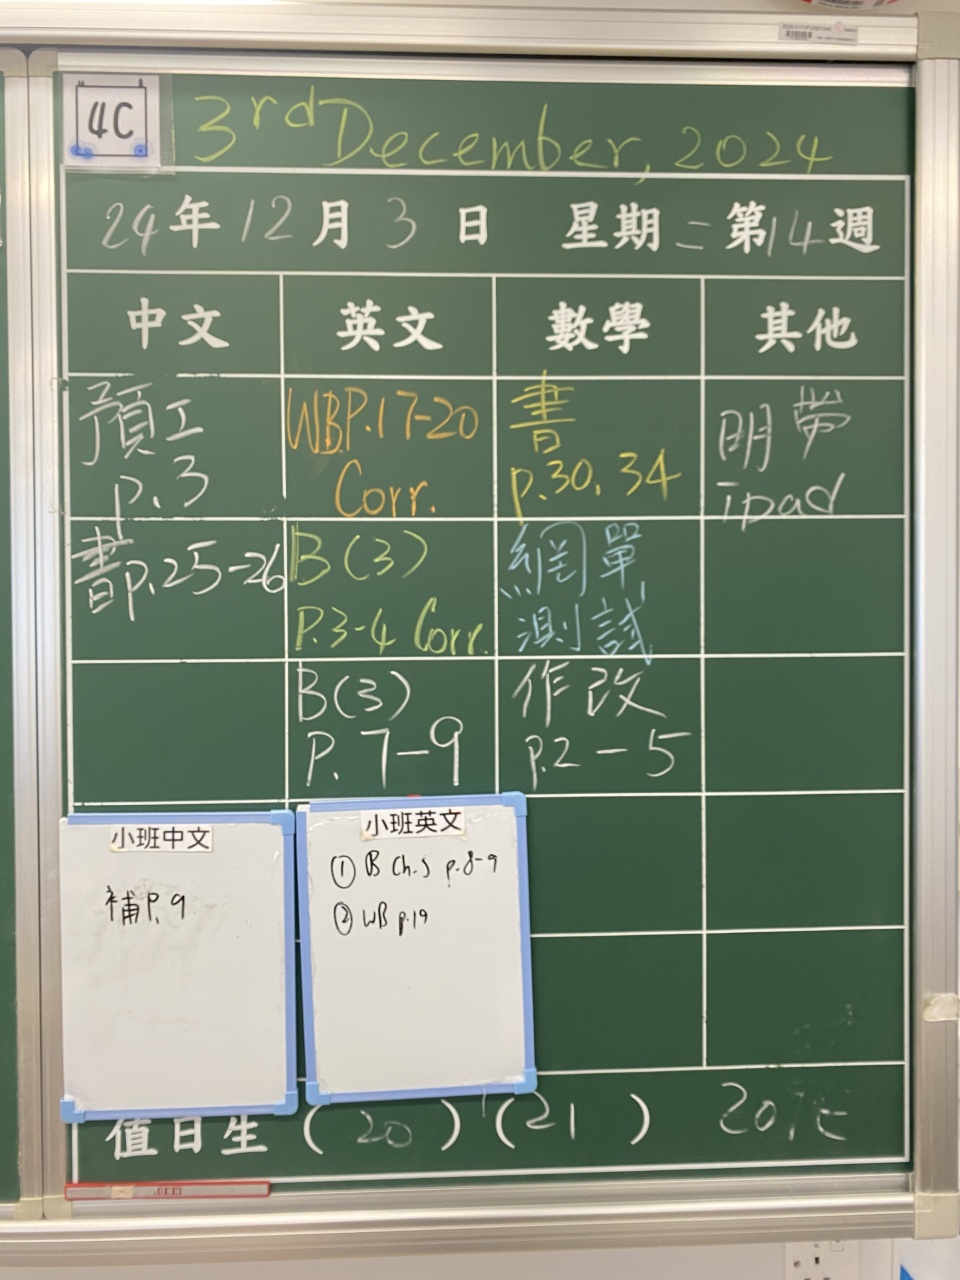 4C
3rd December, 2024
24年12月3日 星期二 第14週
中文 英文 數學 其他
預工
p.3
WBP.17-20
Corr.
書
p.30, 34
明帶
ipad
書p.25-26
B(3)
P.3-4 Corr.
網單
測試
B(3)
P.7-9
作改
p.2-5
小班中文
補P.9
小班英文
① B Ch.5 p.8-9
② WB p.19
值日生 (20) (21)